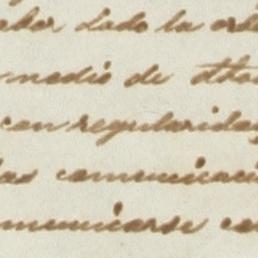 aber dado la orde
medio de dtha
con regularidad
las comunicaci
municarse con